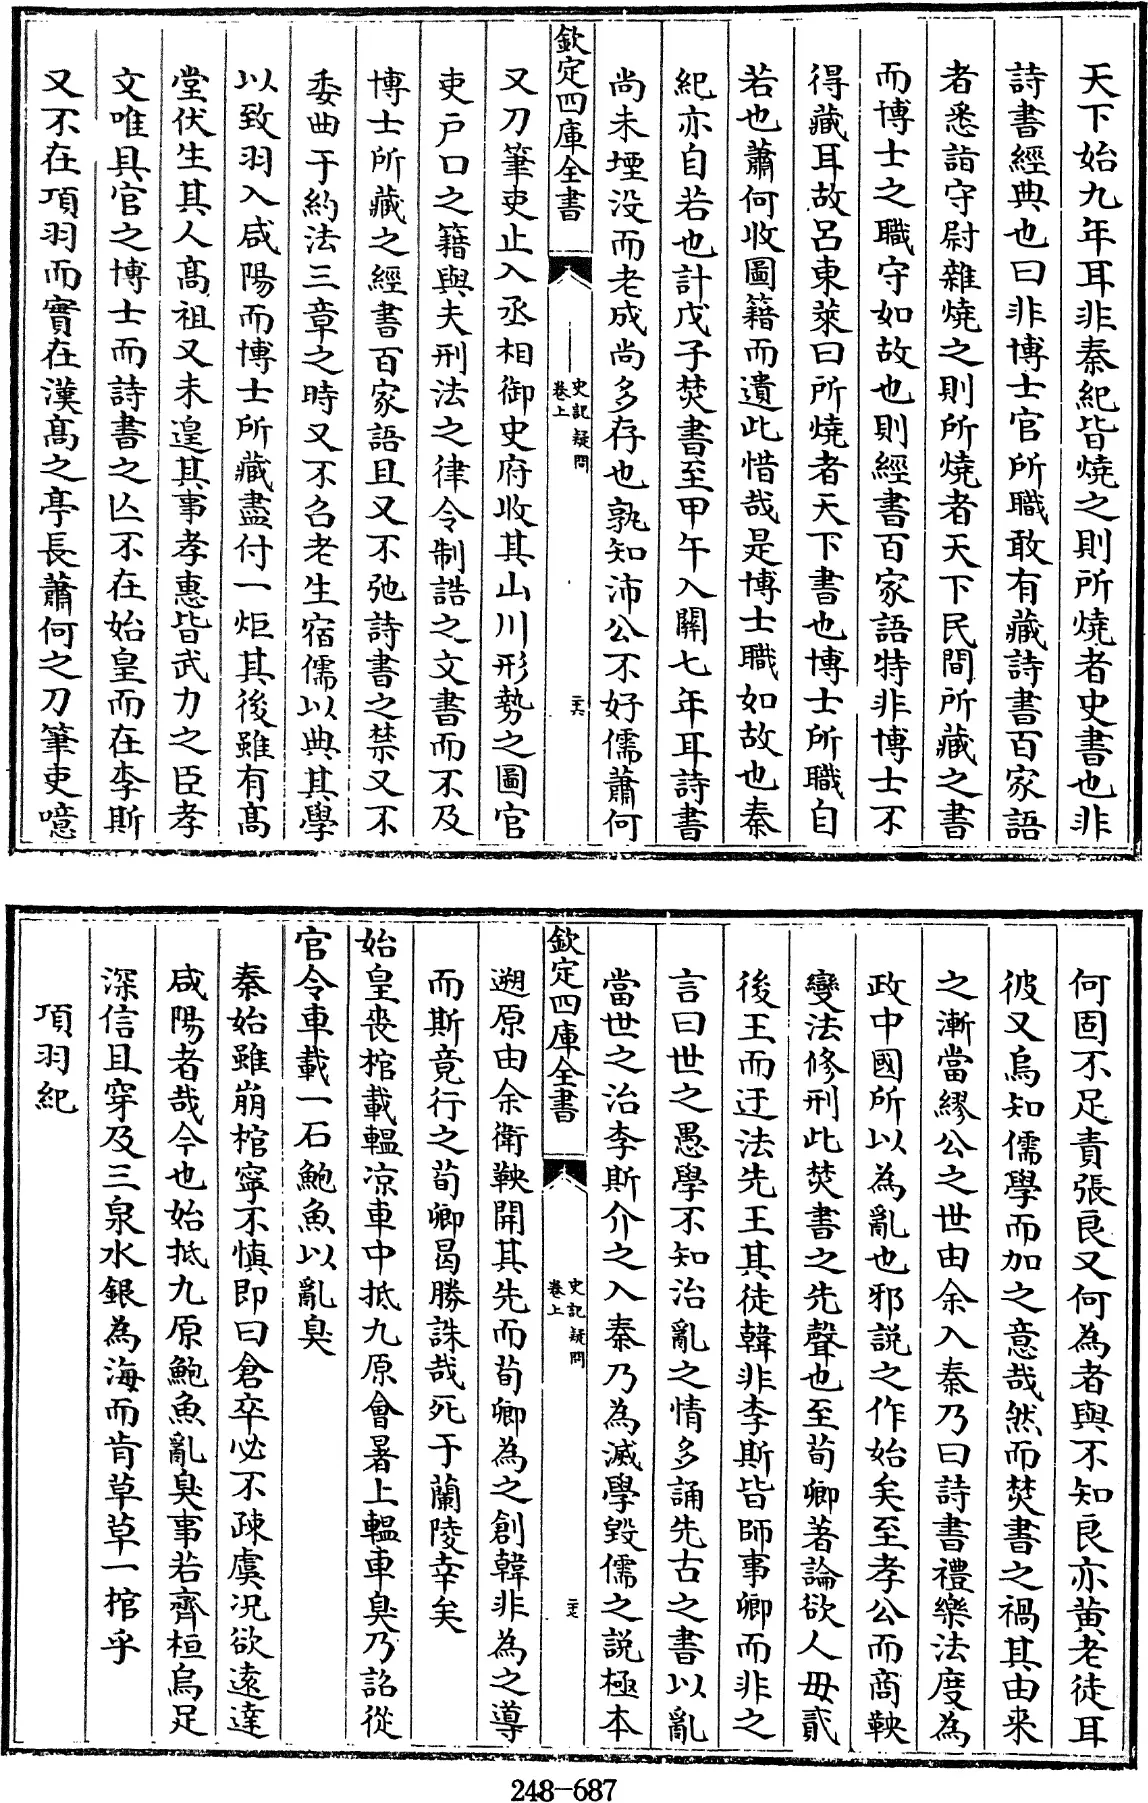 天下始九年耳非秦紀皆燒之則所燒者史書也非
詩書經典也曰非博士官所職敢有藏詩書百家語
者悉詣守尉雜燒之則所燒者天下民間所藏之書
而博士之職守如故也則經書百家語特非博士不
得藏耳故呂東萊曰所燒者天下書也博士所職自
若也蕭何收圖籍而遺此惜哉是博士職如故也秦
紀亦自若也計戊子焚書至甲午入關七年耳詩書
尚未堙没而老成尚多存也孰知沛公不好儒蕭何
欽定四庫全書
史記疑問
卷上
二十六
又刀筆吏止入丞相御史府收其山川形勢之圖官
吏户口之籍與夫刑法之律令制誥之文書而不及
博士所藏之經書百家語且又不弛詩書之禁又不
委曲于約法三章之時又不召老生宿儒以典其學
以致羽入咸陽而博士所藏盡付一炬其後雖有髙
堂伏生其人髙祖又未遑其事孝惠皆武力之臣孝
文唯具官之博士而詩書之亾不在始皇而在李斯
又不在項羽而實在漢髙之亭長蕭何之刀筆吏噫
何固不足責張良又何為者與不知良亦黄老徒耳
彼又烏知儒學而加之意哉然而焚書之禍其由来
之漸當繆公之世由余入秦乃曰詩書禮樂法度為
政中國所以為亂也邪説之作始矣至孝公而商鞅
變法修刑此焚書之先聲也至荀卿著論欲人毋貳
後王而迂法先王其徒韓非李斯皆師事卿而非之
言曰世之愚學不知治亂之情多誦先古之書以亂
當世之治李斯介之入秦乃為滅學毀儒之説極本
欽定四庫全書
史記疑問
卷上
二十七
遡原由余衛鞅開其先而荀卿為之創韓非為之導
而斯竟行之荀卿曷勝誅哉死于蘭陵幸矣
始皇喪棺載轀凉車中抵九原會暑上轀車臭乃詔從
官令車載一石鮑魚以亂臭
秦始雖崩棺寧不慎即曰倉卒必不疎虞况欲遠達
咸陽者哉今也始抵九原鮑魚亂臭事若齊桓烏足
深信且穿及三泉水銀為海而肯草草一棺乎
項羽紀
248-687